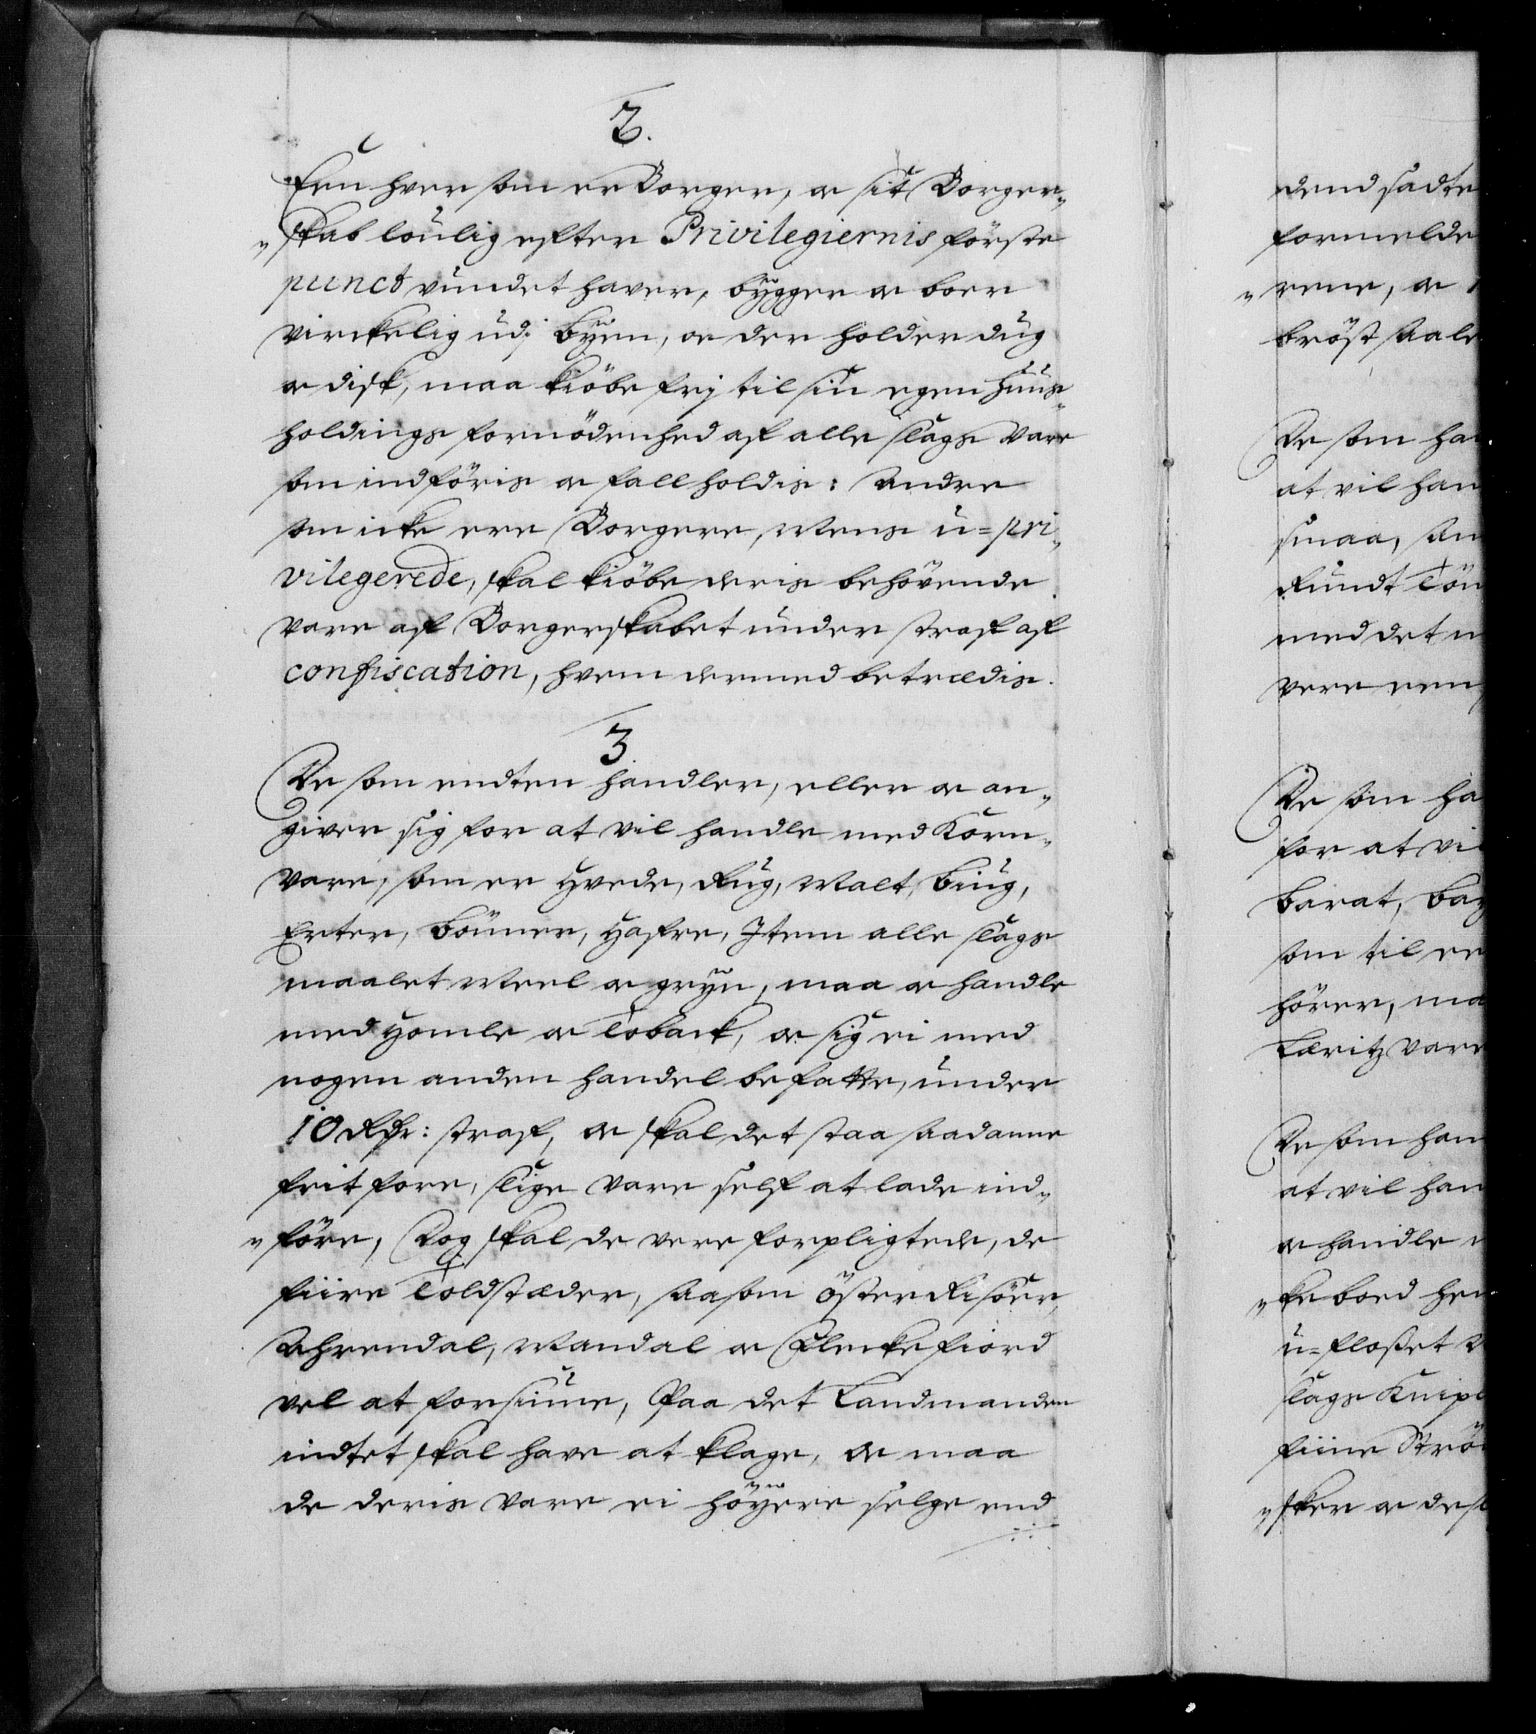 2.
Een hver som er Borger, oc sit Borger„
„skab loulig efter Privilegiernis förste
punct vundet haver, bÿgger oc boer
virckelig udj bÿen, oc der holder dug
oc disk, maa kiöbe frj til sin egen huus„
holdings fornödenhed af alle slags vare
som indföris oc fall holdis: Andre
som icke ere Borgere, Mens u=pri„
vilegerede, skal kiöbe deris behövende
vare af Borgerskabet under straf af
confiscation, hvem dermed betrædis.
3.
De som endten handler, eller oc an„
giver sig for at vil handle med Korn„
vare, som er Hvede, Rug, Malt, biug,
Erter, bönner, Hafre, Item alle slags
maalet Meel oc grÿn, maa oc handle
med Homle oc Toback, oc sig ei med
nogen anden handel befatte, under
10 Rdr: straf, oc skal det staa saadanne
frit fore, slige vare self at lade ind„
„före, Dog skal de vere forpligtede, de
fiire Toldstæder, saasom Öster Risöer,
Ahrendal, Mandal oc Fleckefiord
vel at forsiune, Paa det Landmanden
indtet skal have at klage, oc maa
de deris vare ei höÿere selge end
dend sadte
formelde
„rene, oc
bröst saale
De som han
at vil han
smaa, san
Rundt Tön
med det
vere een
De som ha
for at vi
barat, baÿ
som til
hörer, ma
Læritz vare
De som han
at vil han
oc handle
„ke boed hen
u=flosset
slags Knipl
fiine Strö
„sker oc desl